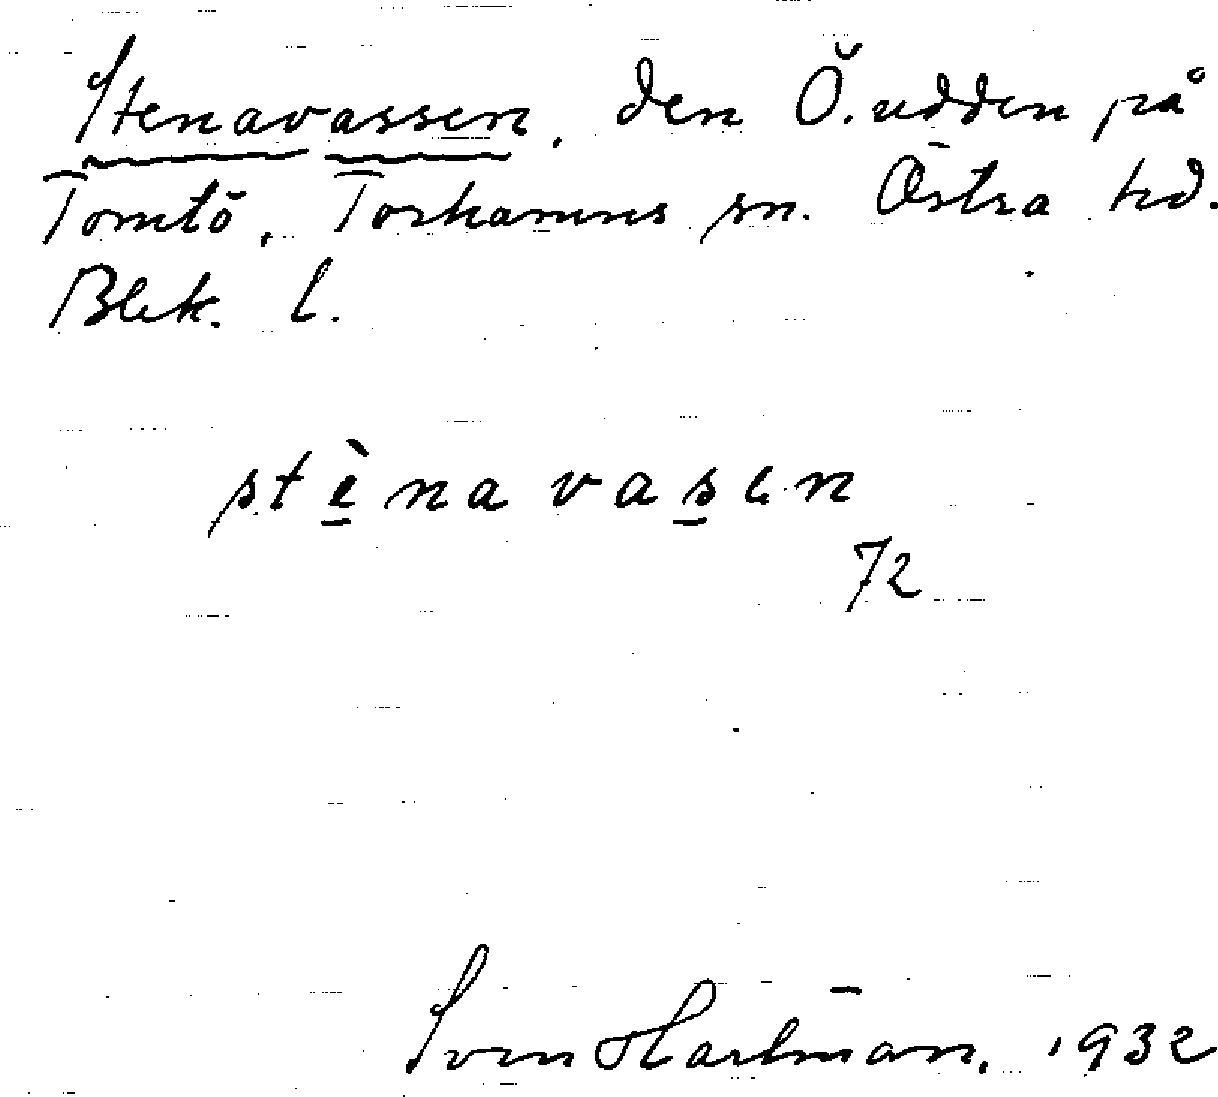 Stenavassen, den Ö. udden på
Tomtö, Torhamns sn. Östra hd.
Blek. l.
stènavasen
72
Sven Hartman. 1932